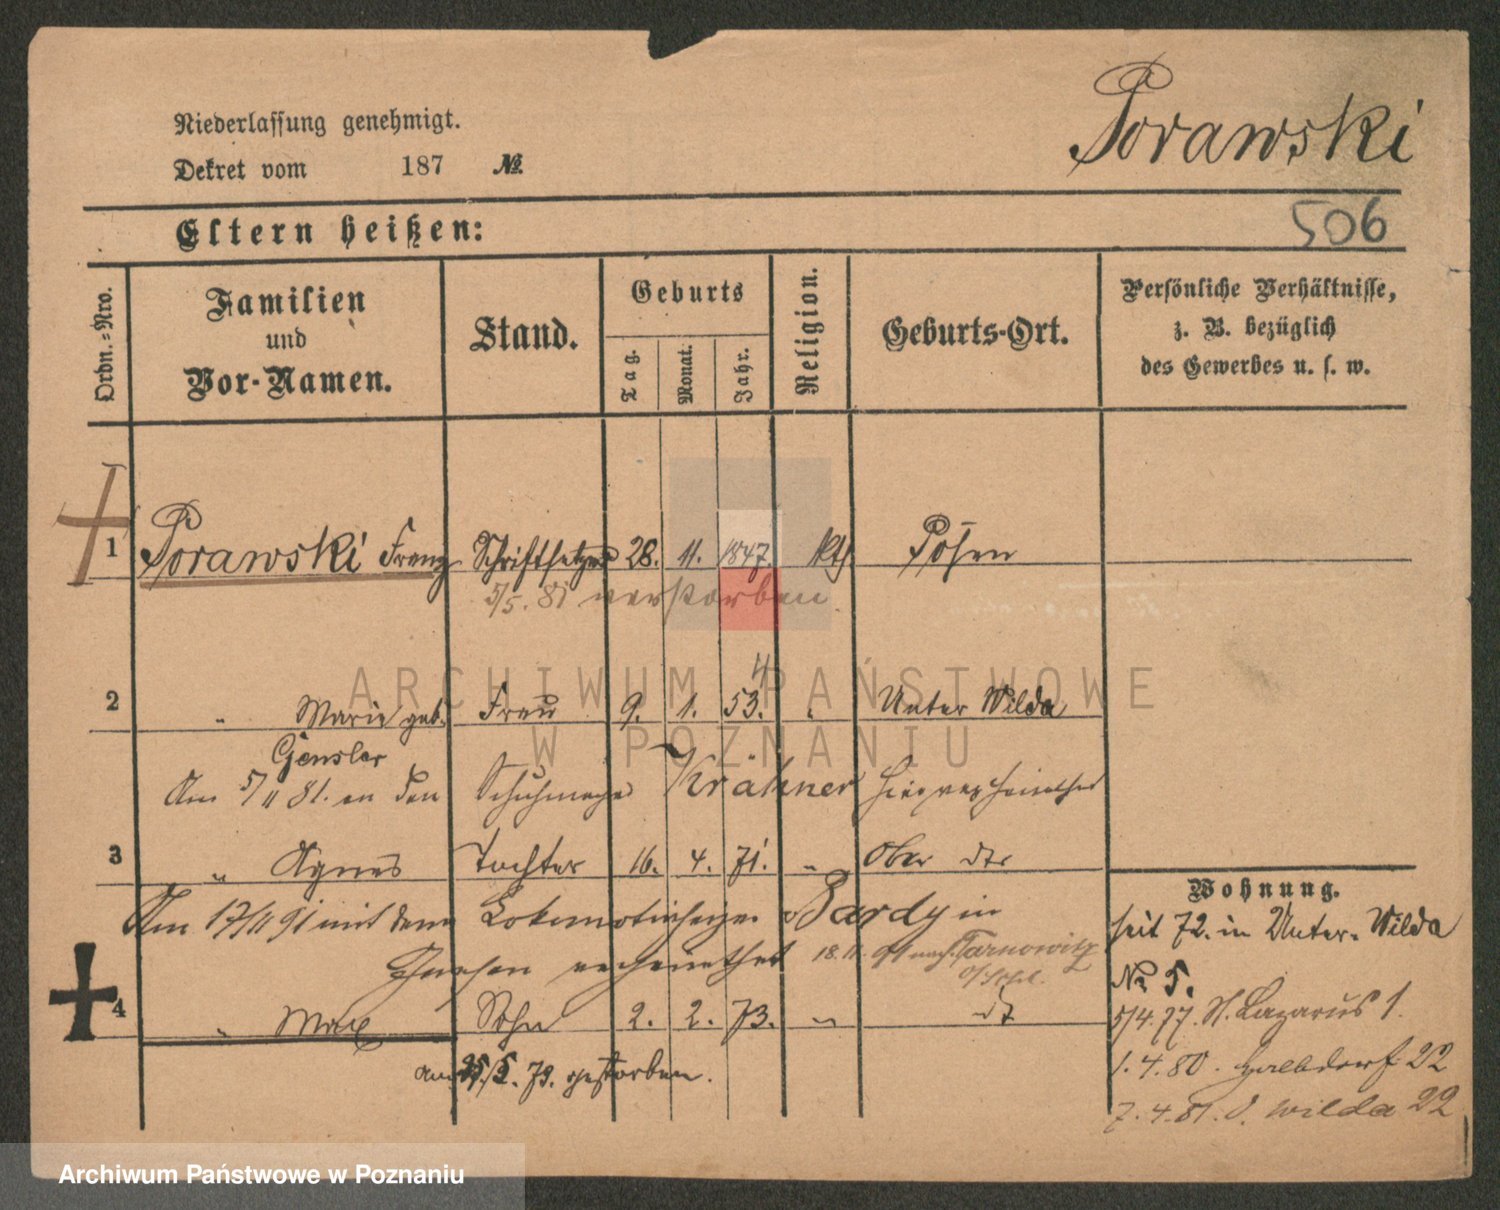 Niederlassung genehmigt.
Dekret vom 187 №
Porawski
Eltern heißen:
506
Ordn.-Nro.
Familien und Vor-Namen.
Stand.
Geburts
Tag. Monat. Jahr.
Religion.
Geburts-Ort.
Persönliche Verhältnisse, z. B. bezüglich des Gewerbes u. s. w.
1 Porawski Franz Schriftsetzer 28. 11. 1847. kth Posen
5/5. 81 verstorben.
4
2 " Marie geb. Frau 9. 1. 53. " Unter Wilda
Gensler
Am 5/11 81. an den Schuhmacher Krähner hier verheirathet
3 " Agnes Tochter 16. 4. 71. " Ober dto
Am 17/11 91 mit dem Lokomotivheizer Bardy in
Gnesen verheirathet 18. 11. 91 nach Tarnowitz
o/Schl.
4 " Max Sohn 2. 2. 73. " dt
am 25./5. 79. gestorben.
Wohnung.
seit 72. in Unter-Wilda
No 5.
5/4. 77. St. Lazarus 1.
1. 4. 80. Halbdorf 22
7. 4. 81. U. Wilda 22
ARCHIWUM PAŃSTWOWE
W POZNANIU
Archiwum Państwowe w Poznaniu